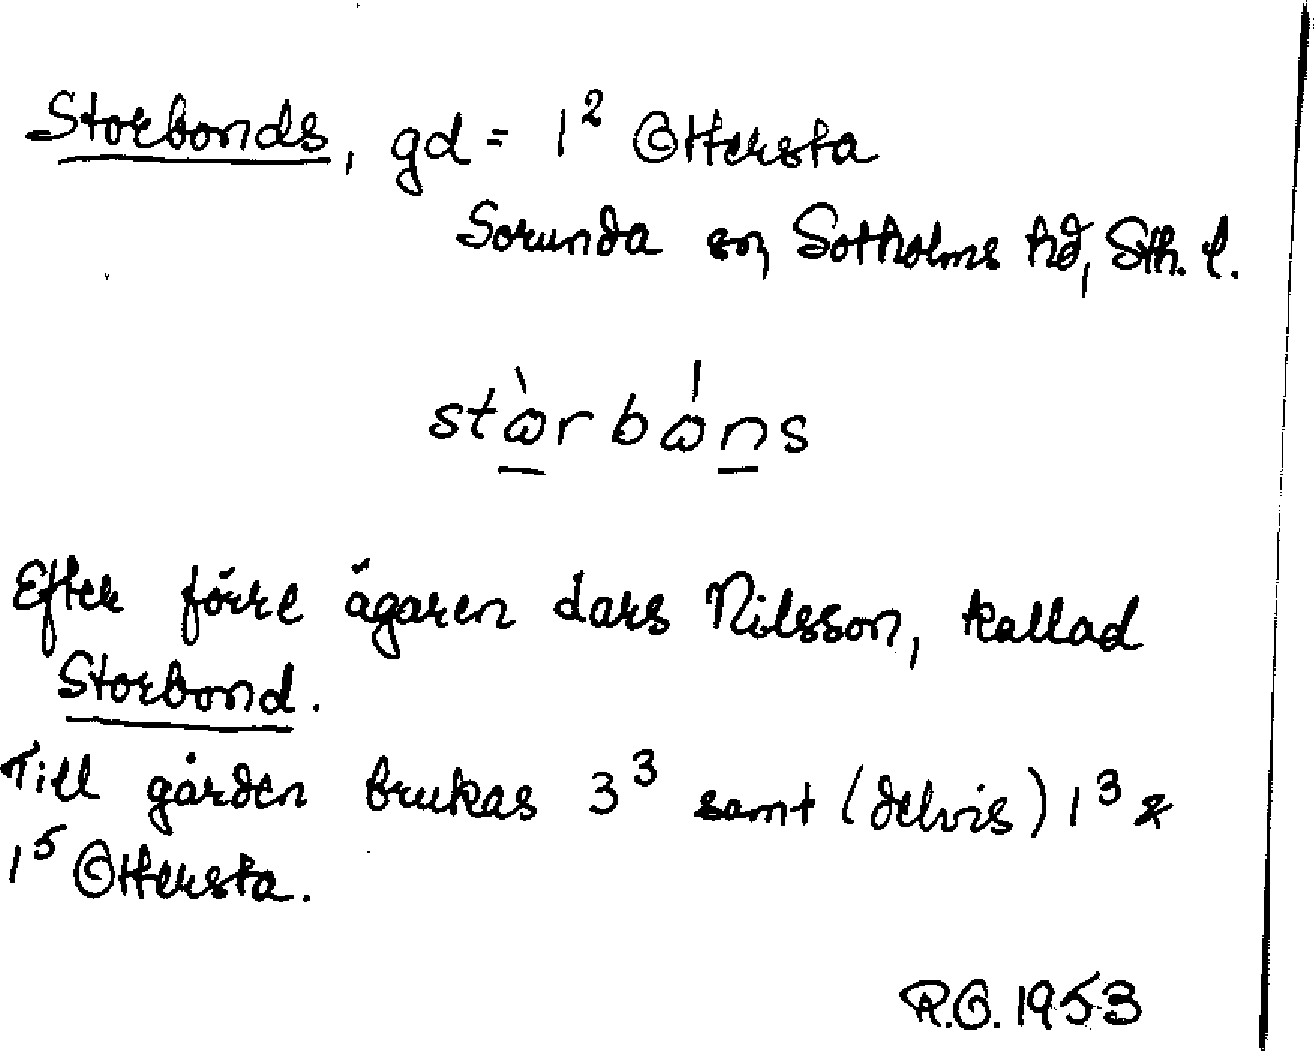 Storbonds, gd = 1² Ottersta
Sorunda sn, Sotholms hd, Sth. l.
stɷ̀rbɷ́ns
Efter förre ägaren Lars Nilsson, kallad
Storbond.
Till gården brukas 3³ samt (delvis) 1³ &
1⁵ Ottersta.
R.O. 1953